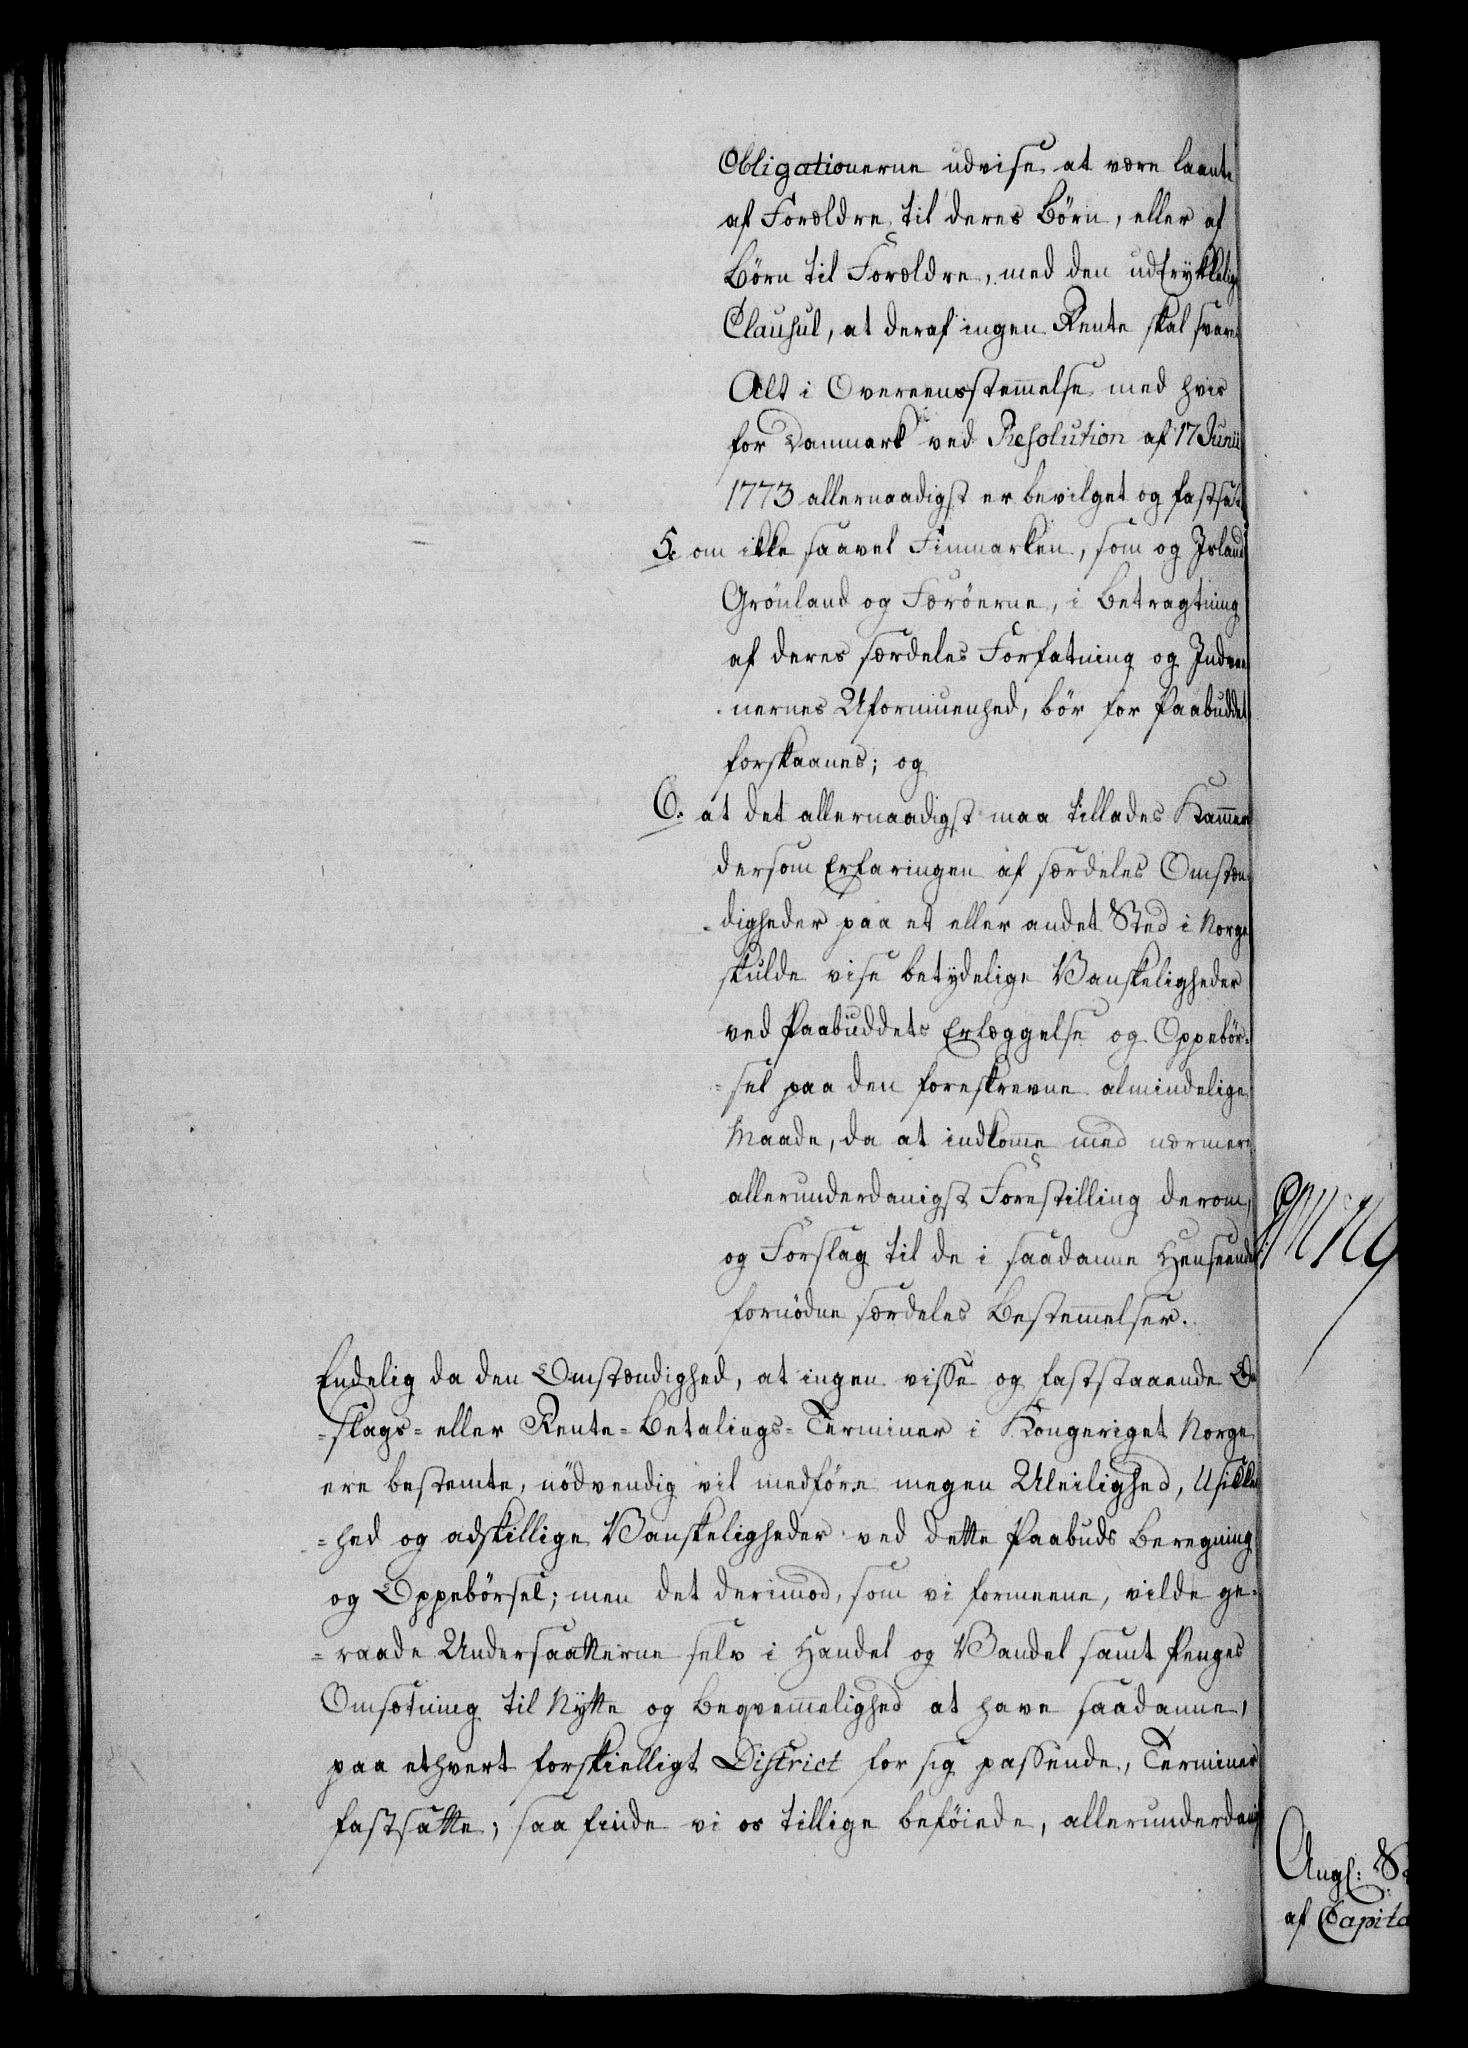 Obligationerne udvise at være laante
af Forældre til deres Börn, eller af
Börn til Forældre, med den udtrykkelig
Clausul, at deraf ingen Rente skal svare
Alt i Overeensstem̄else med hvis
for Danmark ved Resolution af 17 Junii
1773 allernaadigst er bevilget og fastsat
5. om ikke saavel Finmarken, som og Island
Grönland og Færöerne, i Betragtning
af deres særdeles Forfatning og Indvaa
nernes Uformuenhed, bör for Paabuddet
forskaanes; og
6. at det allernaadigst maa tillades Kam̄er
dersom Erfaringen af særdeles Omstæn-
-digheder paa et eller andet Sted i Norge
skulde vise betydelige Vanskeligheder
ved Paabuddets Erlæggelse og Oppebör-
-sel paa den foreskrevne almindelige
Maade, da at indkom̄e med nærmere
allerunderdanigst Forestilling derom,
og Forslag til de i saadanne Henseende
fornödne særdeles Bestem̄elser.
Endelig da den Omstændighed, at ingen visse og faststaaende
-slags- eller Rente-Betalings-Terminer i Kongeriget Norge
ere bestemte, nödvendig vil medföre megen Uleilighed, Usikker
-hed og adskillige Vanskeligheder ved dette Paabuds Beregning
og Oppebörsel; men det derimod, som vi formeene, vilde ge-
-raade Undersaatterne selv i Handel og Vandel samt Penges
Omsætning til Nytte og Beqvem̄elighed at have saadanne,
paa ethvert forskielligt District for sig passende, Terminer
fastsatte; saa finde vi os tillige beföiede, allerunderdanig
Angl: S
af Capita